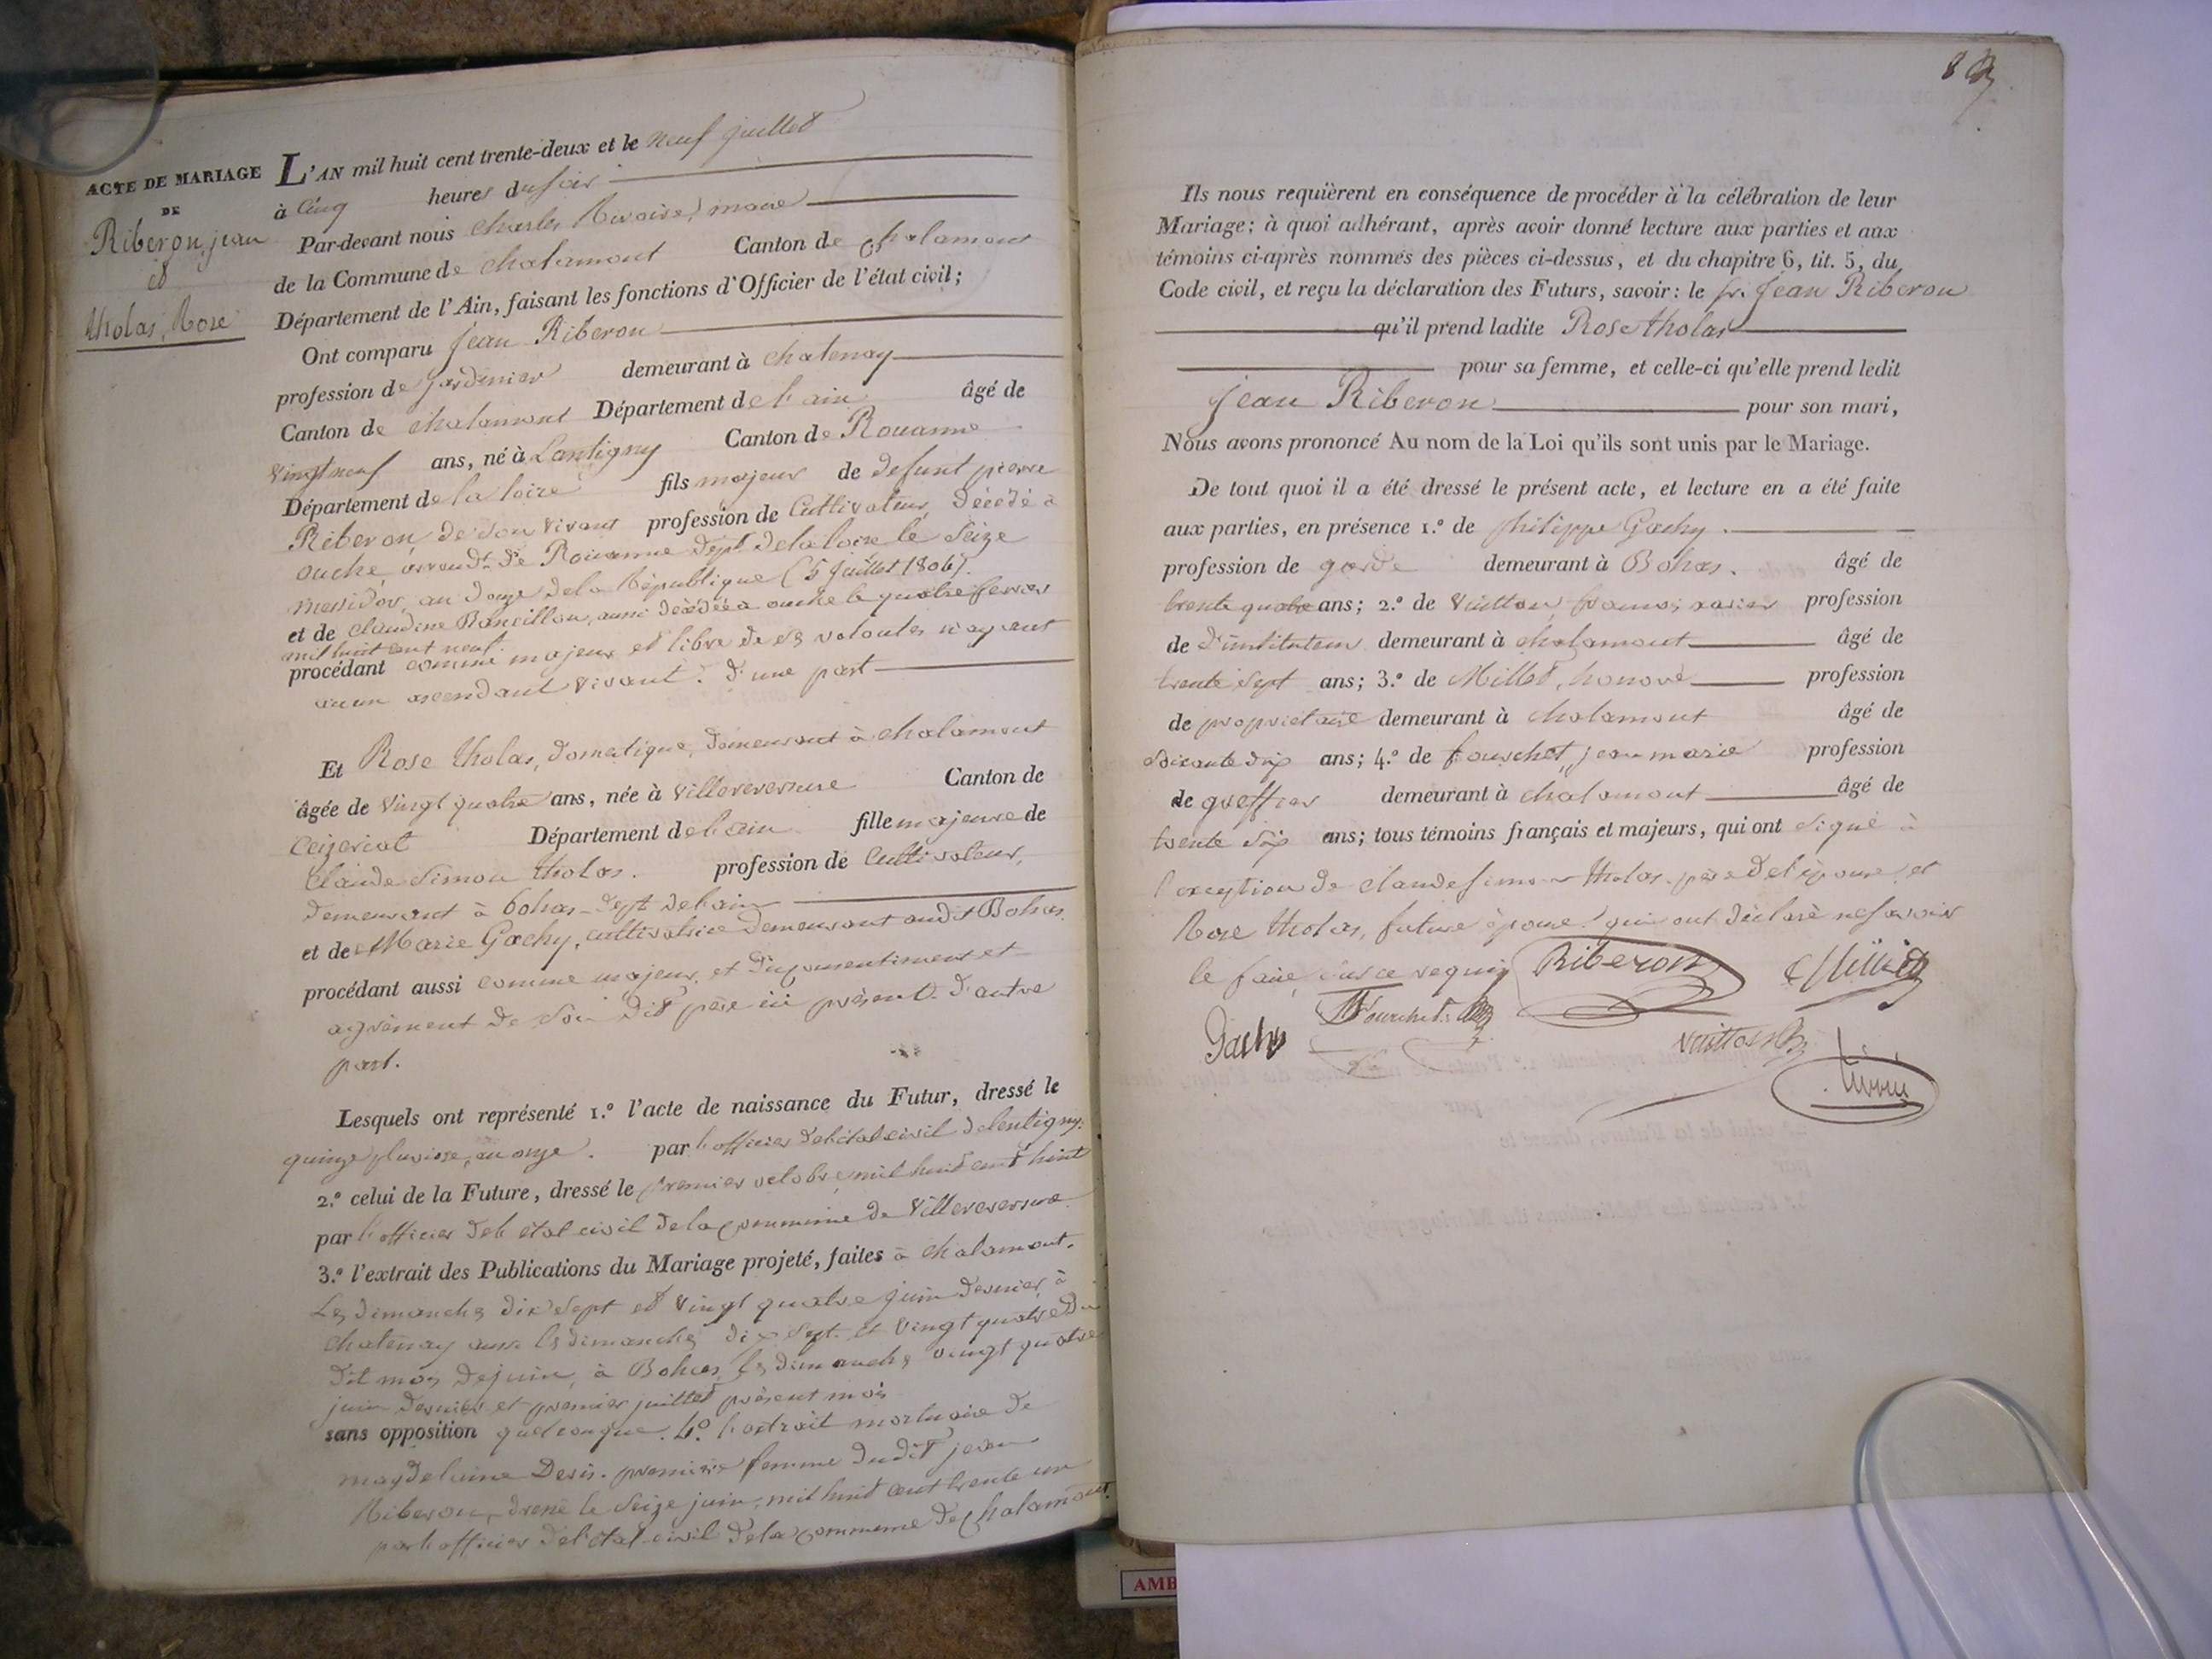 ACTE DE MARIAGE
DE
Riberon, jean
et
tholas, Rose
L'AN mil huit cent trente-deux et le neuf juillet
à Cinq heures du soir
Par-devant nous Charles maire
de la Commune de chalamont Canton de chalamont
Département de l'Ain, faisant les fonctions d'Officier de l'état civil;
Ont comparu Jean Riberon
profession de jardinier demeurant à chatenay
Canton de chalamont Département de l'ain âgé de
vingt neuf ans, né à Lentigny Canton de Rouanne
Département de la loire fils majeur de defunt pierre
Riberon, de son vivant profession de Cultivateur, décédé à
ouche, arrond.t de Rouanne dépt de la loire le seize
messidor, an douze de la République (5 juillet 1806).
et de claudine aussi décédée à ouche le quatre fevrier
mil huit cent neuf.
procédant comme majeur et libre de ses volontés n'ayant
aucun ascendant vivant. d'une part
Et Rose tholas, domestique, demeurant à chalamont
âgée de vingt quatre ans, née à villereversure Canton de
Ceizeriat Département de l'ain fille majeure de
Claude Simon tholas. profession de Cultivateur,
demeurant à bohas dept de l'ain
et de Marie Gachy, cultivatrice demeurant audit Bohas.
procédant aussi comme majeure, et du consentiment et
agrément de son dit père ici présent. d'autre
part.
Lesquels ont représenté 1.º l'acte de naissance du Futur, dressé le
quinze pluviose, an onze. par l'officier de l'état civil de lentigny.
2.º celui de la Future, dressé le premier octobre mil huit cent huit
par l'officier de l'état civil de la commune de Villereversure
3.º l'extrait des Publications du Mariage projeté, faites à chalamont.
Les dimanches dix sept et vingt quatre juin dernier, à
chatenay aussi les dimanches dix sept et vingt quatre du
dit mois de juin, à Bohas, les dimanches vingt quatre
juin dernier et premier juillet présent mois
sans opposition quelconque. 4.º l'extrait mortuaire de
magdelaine première femme dudit jean
Riberon, dressé le seize juin, mil huit cent trente un
par l'officier de l'état civil de la commune de chalamont.
Ils nous requièrent en conséquence de procéder à la célébration de leur
Mariage; à quoi adhérant, après avoir donné lecture aux parties et aux
témoins ci-après nommés des pièces ci-dessus, et du chapitre 6, tit. 5, du
Code civil, et reçu la déclaration des Futurs, savoir: le sr. Jean Riberon
qu'il prend ladite Rose tholas
pour sa femme, et celle-ci qu'elle prend ledit
jean Riberon pour son mari,
Nous avons prononcé Au nom de la Loi qu'ils sont unis par le Mariage.
De tout quoi il a été dressé le présent acte, et lecture en a été faite
aux parties, en présence 1.º de philippe Gachy.
profession de garde demeurant à Bohas. âgé de
trente quatre ans; 2.º de Vuitton, françois xavier profession
de d'instituteur demeurant à chalamont âgé de
trente sept ans; 3.º de Milliet, honoré profession
de propriétaire demeurant à chalamont âgé de
soixante dix ans; 4.º de fourchet, jean marie profession
de greffier demeurant à chalamont âgé de
trente six ans; tous témoins français et majeurs, qui ont signé à
l'exception de claude simon tholas père de l'épouse et
Rose tholas, future épouse qui ont déclaré ne savoir
le faire, de ce requis Riberon Milliet
Gachy Fourchet Vuitton
AMB